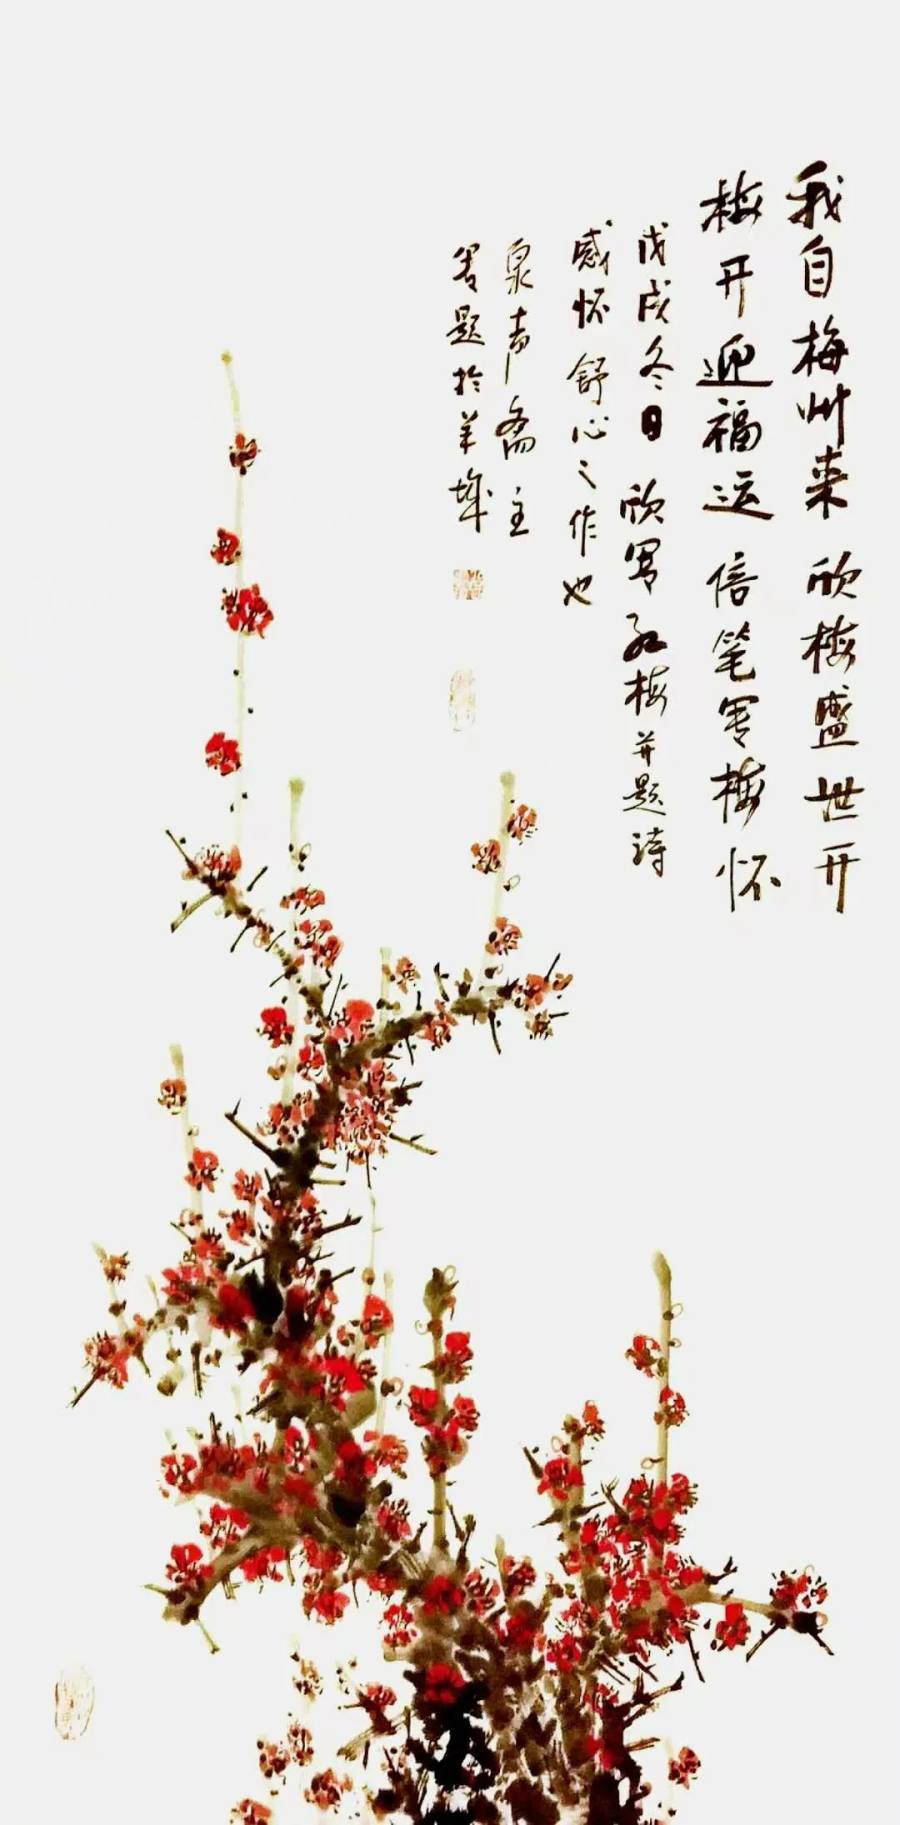 我自梅州来 欣梅盛世开
梅开迎福运 信笔写梅怀
戊戌冬日 欣写红梅并题诗
感怀舒心之作也
泉声斋主
题于羊城